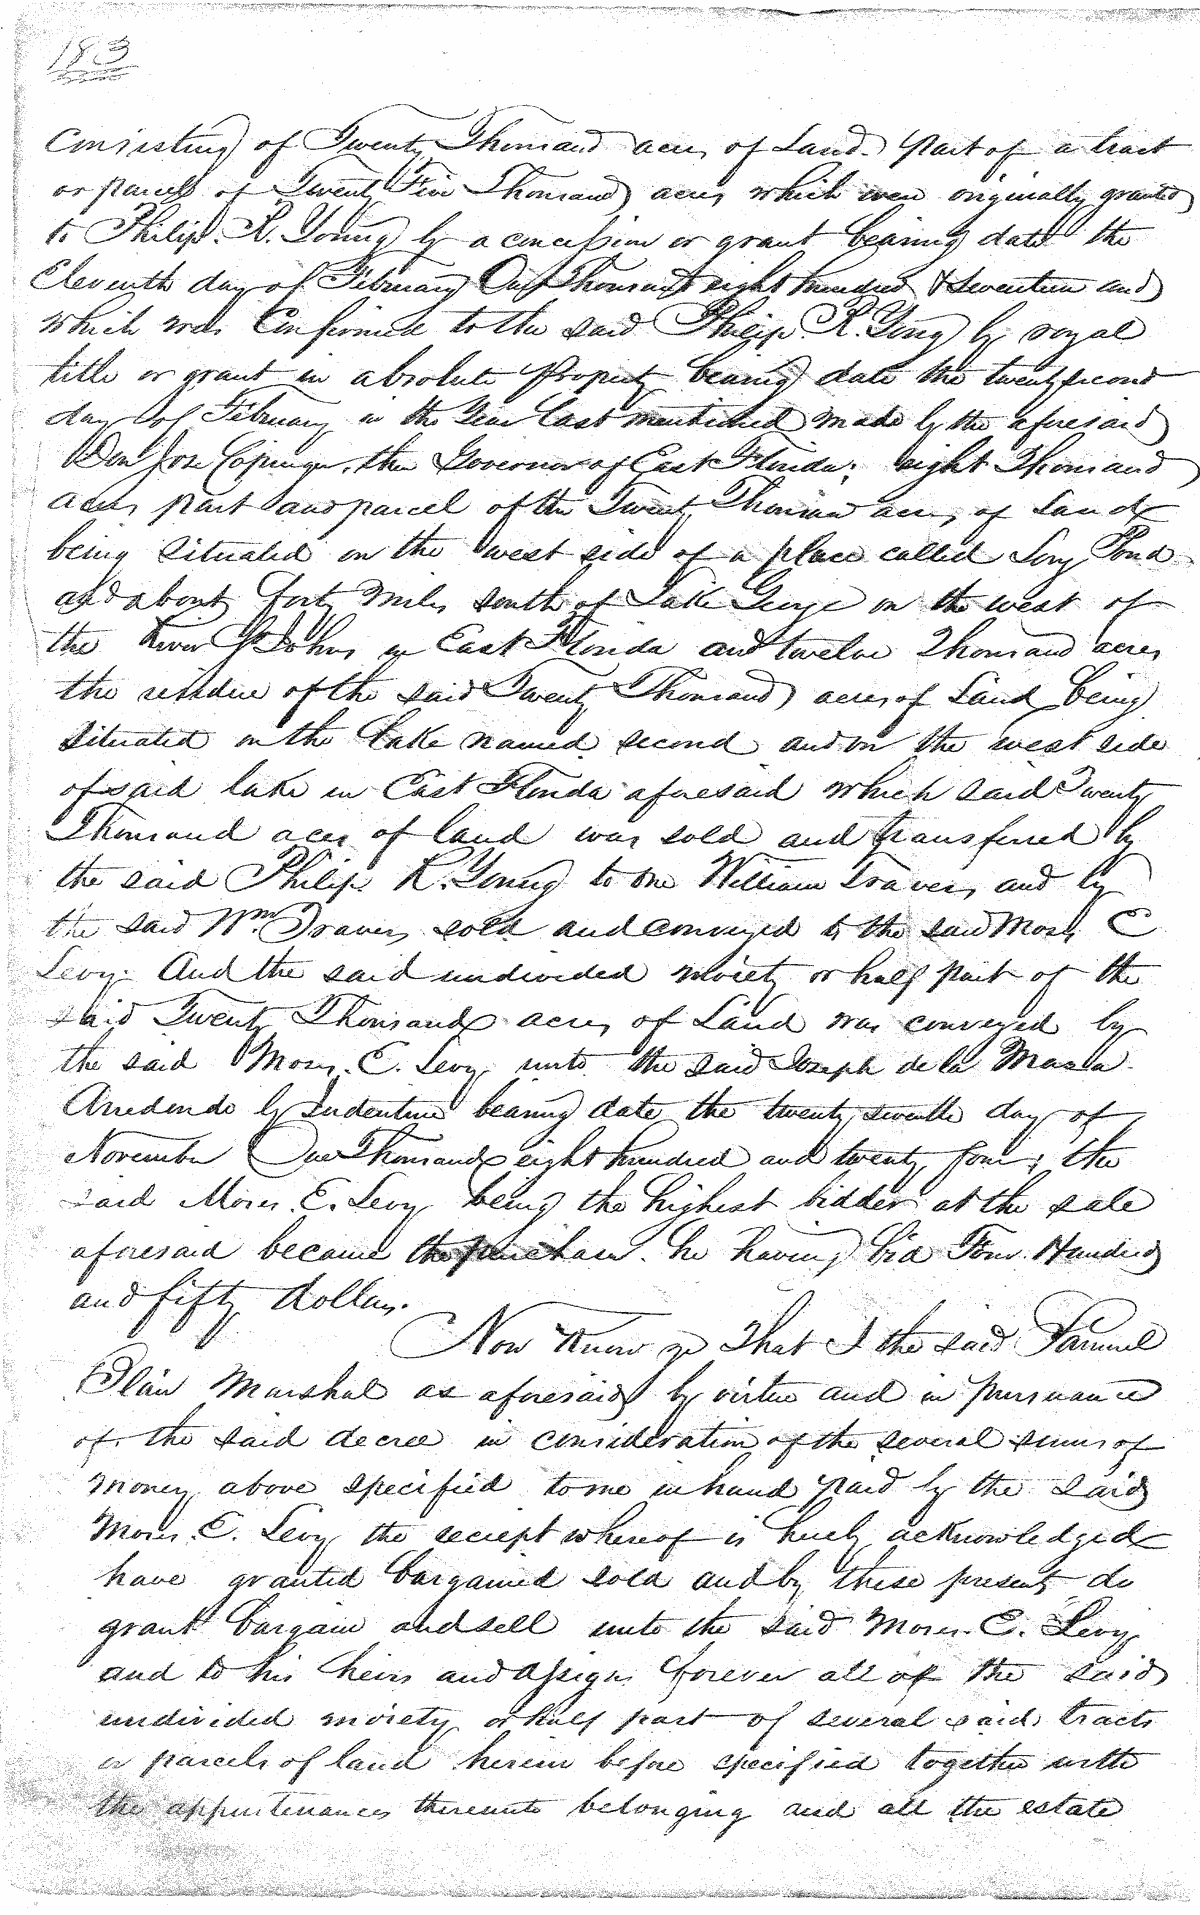 183
Consisting of Twenty Thousand acres of Land. Part of a tract
or parcel of Twenty Five Thousand acres which were originally granted
to Philip. R. Young by a concession or grant bearing date the
Eleventh day of February One Thousand eight hundred & Seventeen and
which was Confirmed to the said Philip. R. Yong by royal
title or grant in absolute Property bearing date the twenty second
day of February in the Year last mentioned made by the aforesaid
Don Jose Copinger, then Governor of East Florida; eight Thousand
acres part and parcel of the Twenty Thousand acres of Land
being Situated on the west side of a place called Long Pond
and about forty Miles South of Lake George on the west of
the River St Johns in East Florida and twelve Thousand acres
the residue of the said Twenty Thousand acres of Land being
Situated on the Lake named second and on the west side
of said lake in East Florida aforesaid which said Twenty
Thousand acres of land was sold and transferred by
the said Philip R. Young to one William Travers, and by
the said Wm. Travers sold and conveyed to the said Moses E
Levy. And the said undivided moiety or half part of the
said Twenty Thousand acres of Land was conveyed by
the said Moses. E. Levy unto the said Joseph de la Maza
Arredondo by Indenture bearing date the twenty seventh day of
November One Thousand eight hundred and twenty four; the
said Moses. E. Levy being the highest bidder at the sale
aforesaid became the purchaser he having bid Four Hundred
and fifty dollars.
Now Know ye That I the said Samuel
Blair Marshal as aforesaid by virtue and in pursuance
of the said decree in consideration of the several sums of
money above specified to me in hand paid by the said
Moses. E. Levy the receipt whereof is hereby acknowledged
have granted bargained sold and by these presents do
grant bargain and sell unto the said Moses. E. Levy
and to his heirs and assigns forever all of the said
undivided moiety or half part of several said tracts
or parcels of land herein before specified together with
the appurtenances thereunto belonging and all the estate